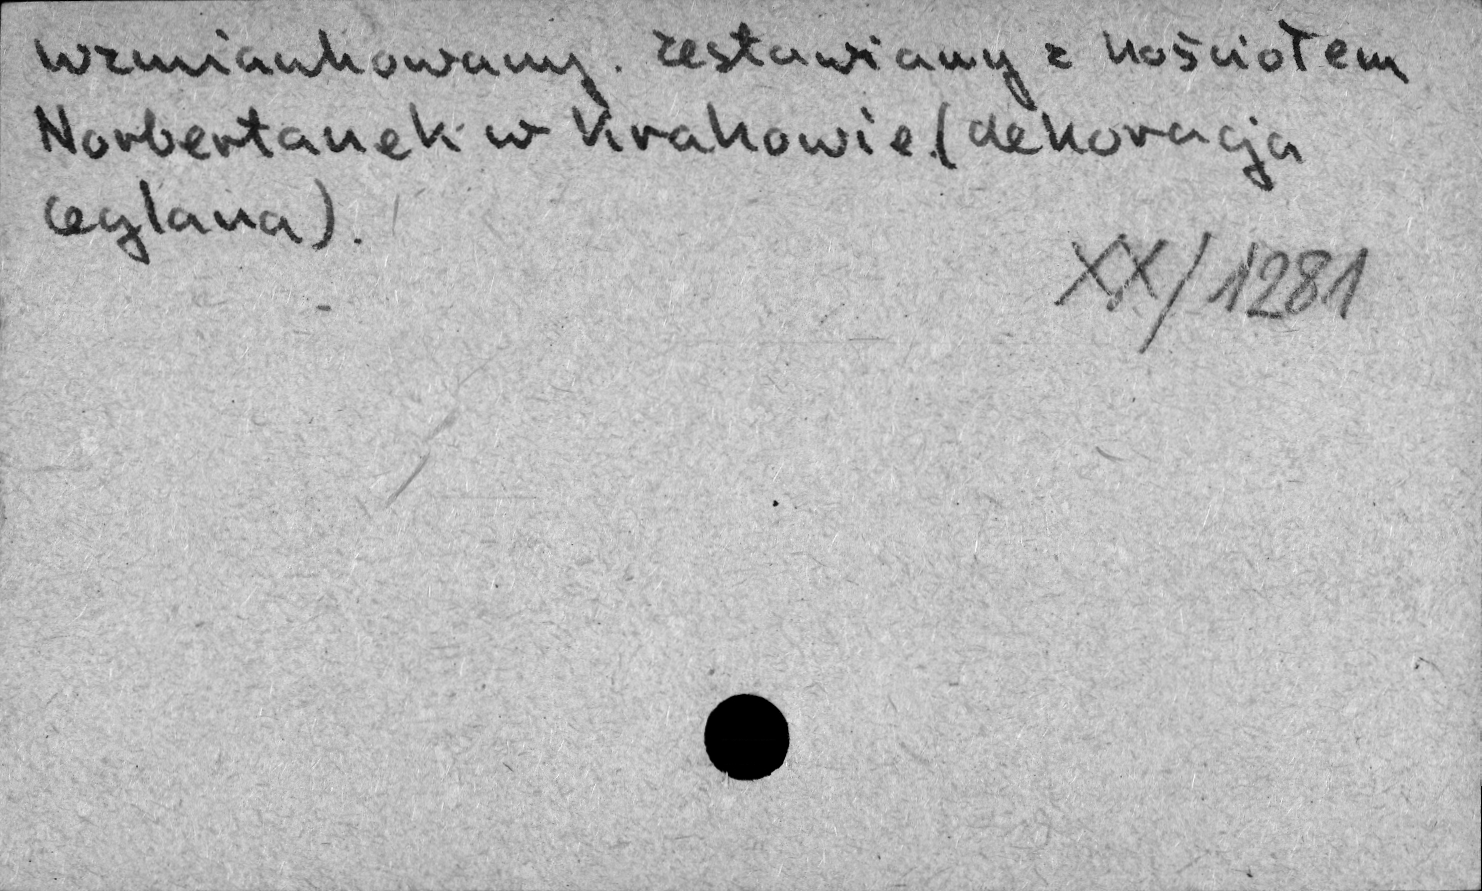 wzmiankowany. zestawiany z kościołem
Norbertanek w Krakowie (dekoracja
ceglana).
XX/1281